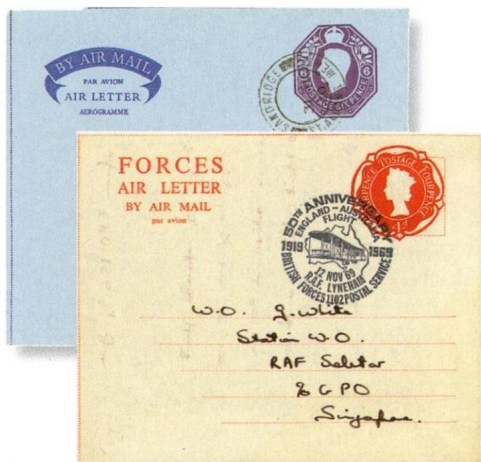 BY AIR MAIL
PAR AVION
AIR LETTER
AEROGRAMME
6 POSTAGE SIXPENCE 6
SANDRIDGE
FORCES
AIR LETTER
BY AIR MAIL
par avion
POSTAGE FOURPENCE
4d
50TH ANNIVERSARY
ENGLAND - AUSTRALIA
FLIGHT
1919 1969
12 NOV 69
R.A.F. LYNEHAM
BRITISH FORCES 1102 POSTAL SERVICE
W.O. J. White
Station W.O.
RAF Seletar
% GPO
Singapore.